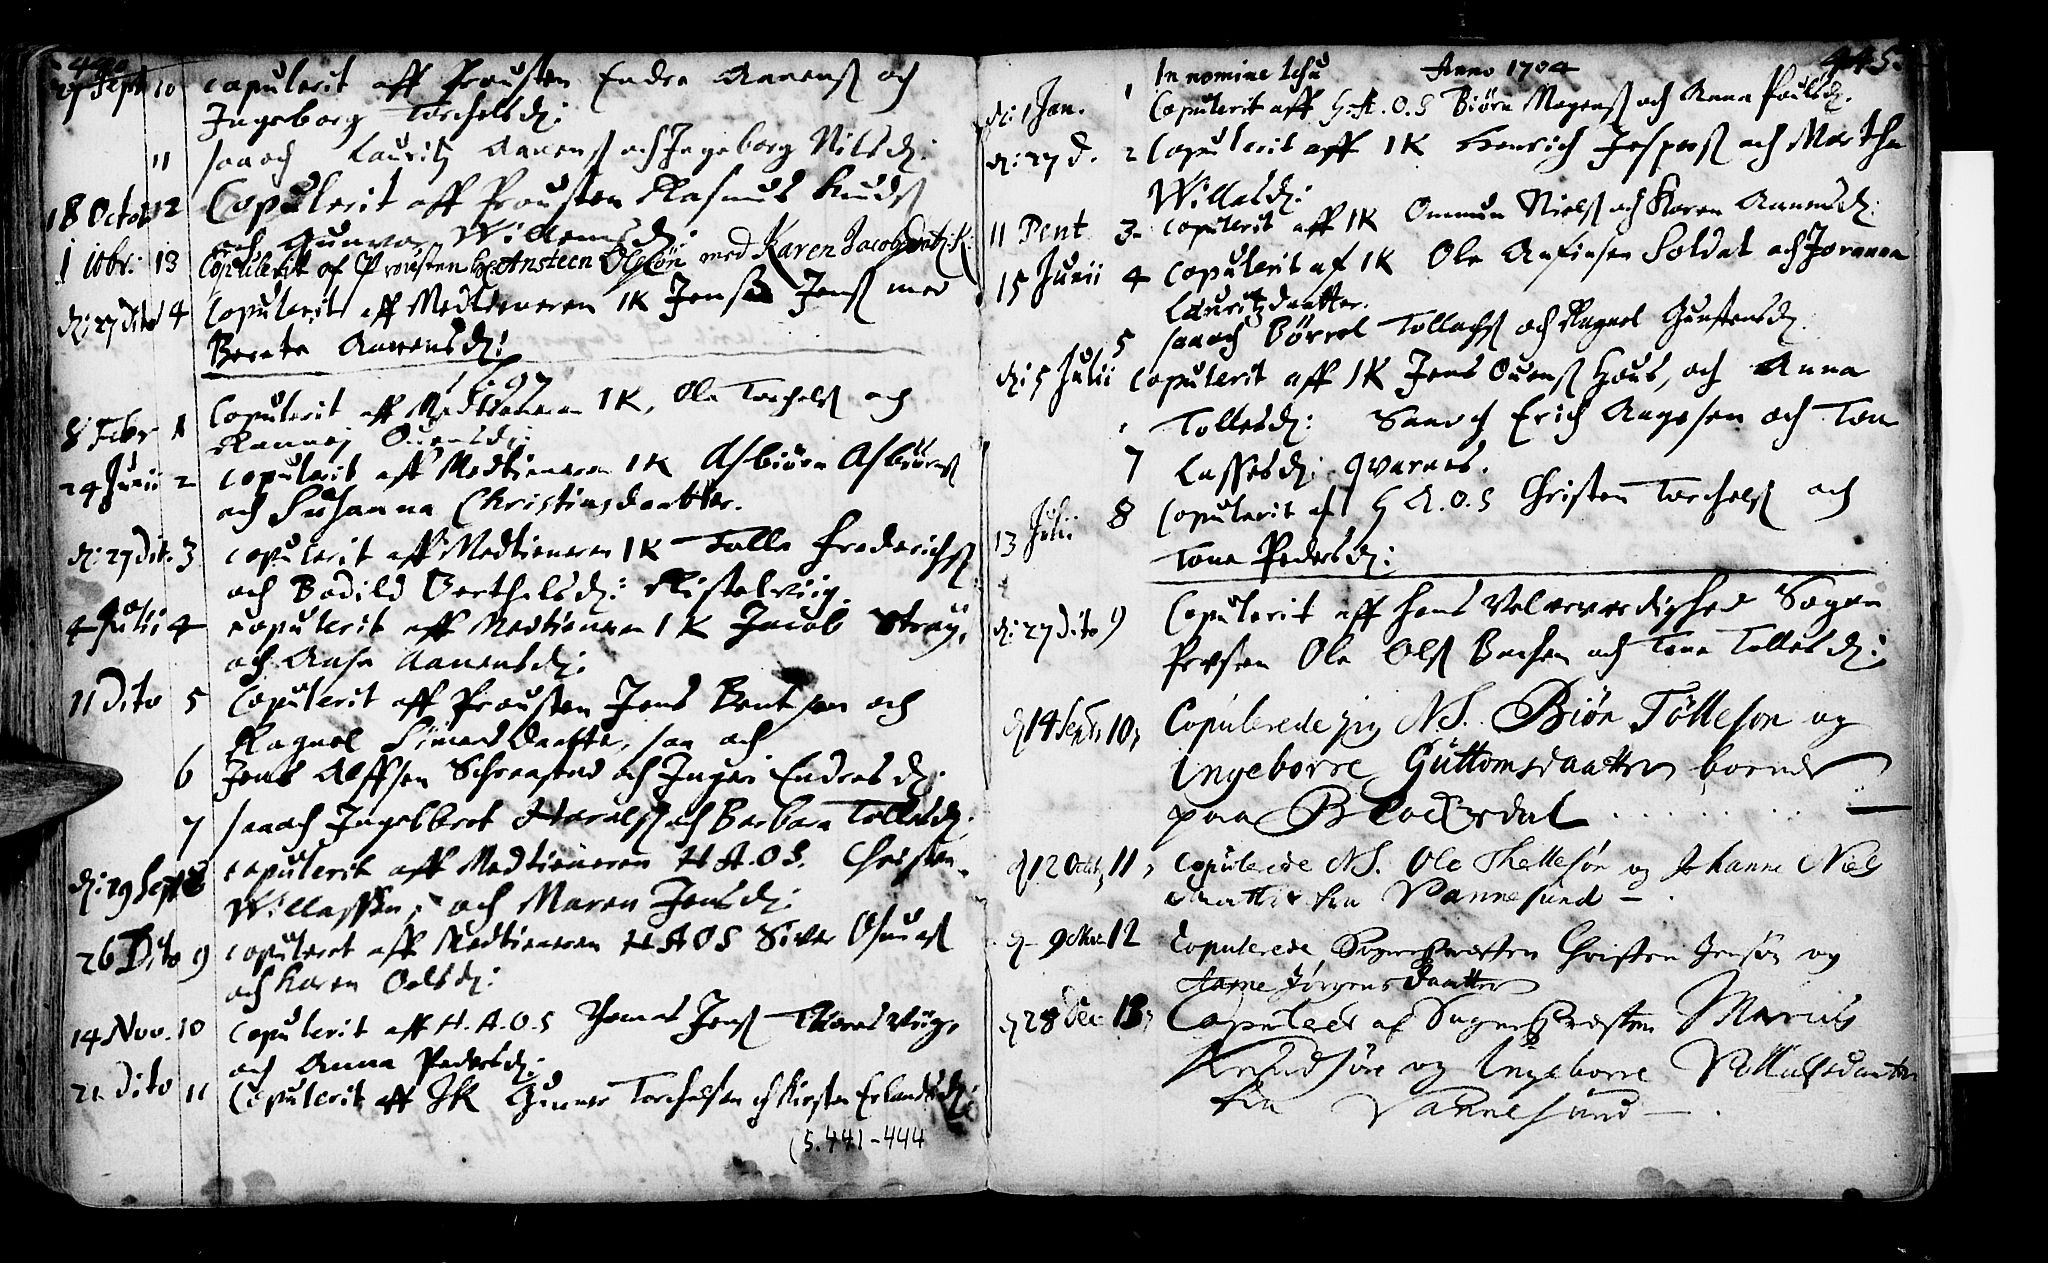 440
27 Sept 10 copulerit aff Prousten Endre Aanens och
Ingeborg Torchelsd:
11 saa och Lauritz Aanens och Ingeborg Nilsd:
18 Octob 12 Copulerit aff Prousten Rasmus Knuds
och Gunvor Willemsd:
1 10br: 13 Copulerit af Prousten Ansteen Olson med Karen Jacobsdaatt:
d: 27 dito 14 Copulerit aff Medtieneren IK Jens Jens med
Berete Aanensd:
1697
8 Febr 1 Copulerit aff Medtieneren IK, Ole Torchels och
Rannej Ouensd:
24 Junii 2 copulerit aff Medtieneren IK Asbiörn Asbiörns
och Susanna Christinsdaatter.
d: 27 dit. 3 copulerit aff Medtieneren IK Tolle Frederichs
och Bodild Berthelsd:
4 Julii 4 copulerit aff Medtieneren IK Jacob Stray,
och Aase Aanensd:
11 Dito 5 Copulerit aff Prousten Jens Bentsen och
Ragnel Simensdaatter, saa och
6 Jens Alffsen Schreosted och Inger Endresd:
7 saa och Ingelbret Haralds och Barbara Tollesd:
d: 29 Sept 8 copulerit aff Medtieneren H A.O.S. Christen
Willassen, och Maren Jensd:
26 Dito 9 copulerit aff Medtieneren H A O S Siver Osmuns
och Karen Oelsd:
14 Nov. 10 copulerit aff H. A. O. S Thomas Jens
och Anna Pedersd:
21 Dito 11 Copulerit aff IK Gunner Torchelsen och Kirsten Erlandsd:
(S. 441-444
445.
In nomine Jesu Anno 1704
d: 1 Jan. 1 Copulerit aff H. A. O. S Biörn Mogens och Anna Poulsd:
d: 27 d. 2 Copulerit aff IK Henrich Jespers och Martha
Willasd:
11 Pent 3 copulerit aff IK Ommun Niels och Karen Aanensd:
15 Junii 4 copulerit af IK Ole Anfinsen Soldat och Joranna
Lauritzdaatter.
5 saa och Börrel Tollachs och Ragnel Gunstensd
d: 5 Julii copulerit aff IK Jens Ouens Hous, och Anna
Tollesd: Saa och Erich Aagesen och Tone
7 Lassesd: Qvarnes.
13 Julii 8 Copulerit af H A. O. S Christen Torchels och
Tone Pedersd:
d: 27 dito 9 Copulerit aff Hans Velærværdighed Sogne
Presten Ole Ols Bachen och Tone Tollesd:
d 14 Septr 10, Copulerede jeg N.S. Biön Tölleson og
Ingeborre Guttomsdaatter boende
paa Blochsdal
d 12 Octob 11, copulerede N.S. Ole Thellesön og Johanne Niels
daatter fra Vannesund
d- 9 12 Copulerede Sognepresten Christen Jensön og
Aasne Jörgensdaatter
d 28 Dec 13, Copuleret af Sognepresten Marcus
Knudsöre og Ingeborre
fra Vannesund